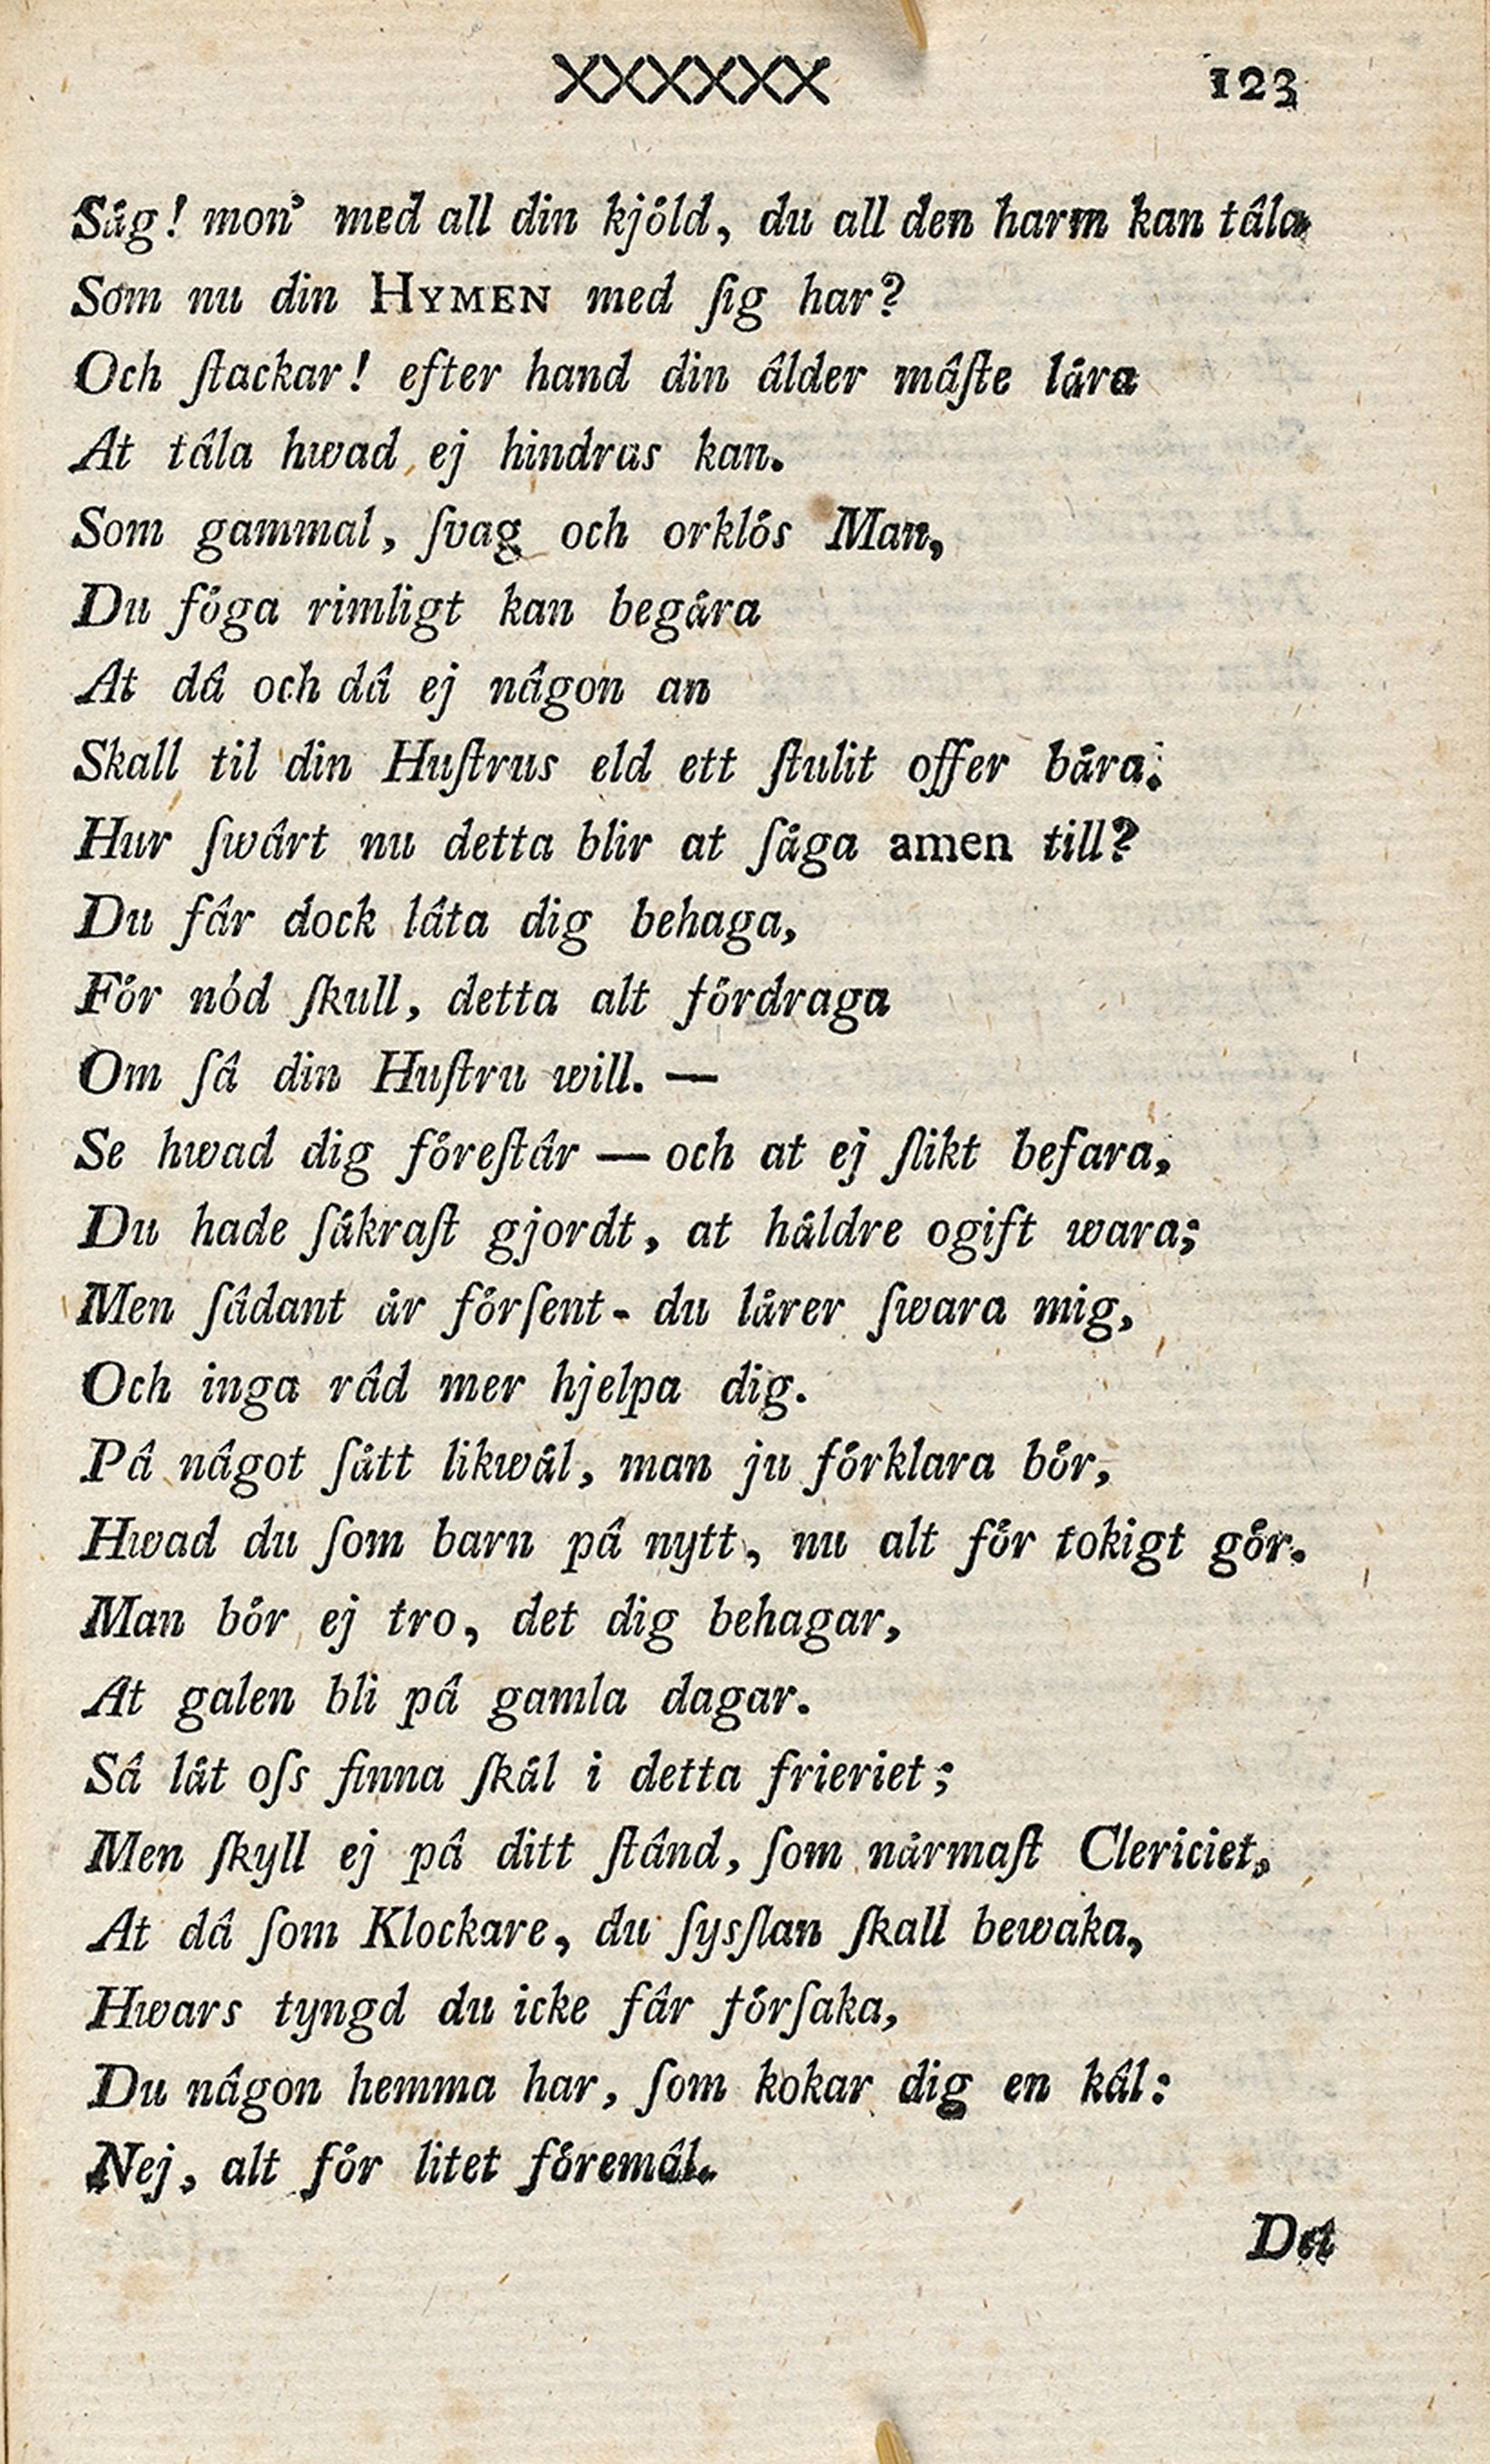 XXXXXX 123
Såg! mon' med all din kjöld, du all den harm kan tâla
Som nu din HYMEN med ſig har?
Och ſtackar! efter hand din âlder mâſte låra
At tâla hwad ej hindras kan.
Som gammal, ſvag och orklös Man,
Du föga rimligt kan begåra
At dâ och dâ ej nâgon an
Skall til din Huſtrus eld ett ſtulit offer båra.
Hur ſwârt nu detta blir at ſåga amen till?
Du fâr dock lâta dig behaga,
För nöd ſkull, detta alt fördraga
Om ſâ din Huſtru will. —
Se hwad dig föreſtâr — och at ej ſlikt befara,
Du hade ſåkraſt gjordt, at håldre ogift wara;
Men ſâdant år förſent - du lårer ſwara mig,
Och inga râd mer hjelpa dig.
Pâ nâgot ſått likwål, man ju förklara bör,
Hwad du ſom barn pâ nytt, nu alt för tokigt gör.
Man bör ej tro, det dig behagar,
At galen bli pâ gamla dagar.
Sâ lât oſs finna ſkål i detta frieriet;
Men ſkyll ej pâ ditt ſtând, ſom nårmaſt Clericiet,
At dâ ſom Klockare, du ſysſlan ſkall bewaka,
Hwars tyngd du icke fâr förſaka,
Du nâgon hemma har, ſom kokar dig en kâl:
Nej, alt för litet föremâl.
Det